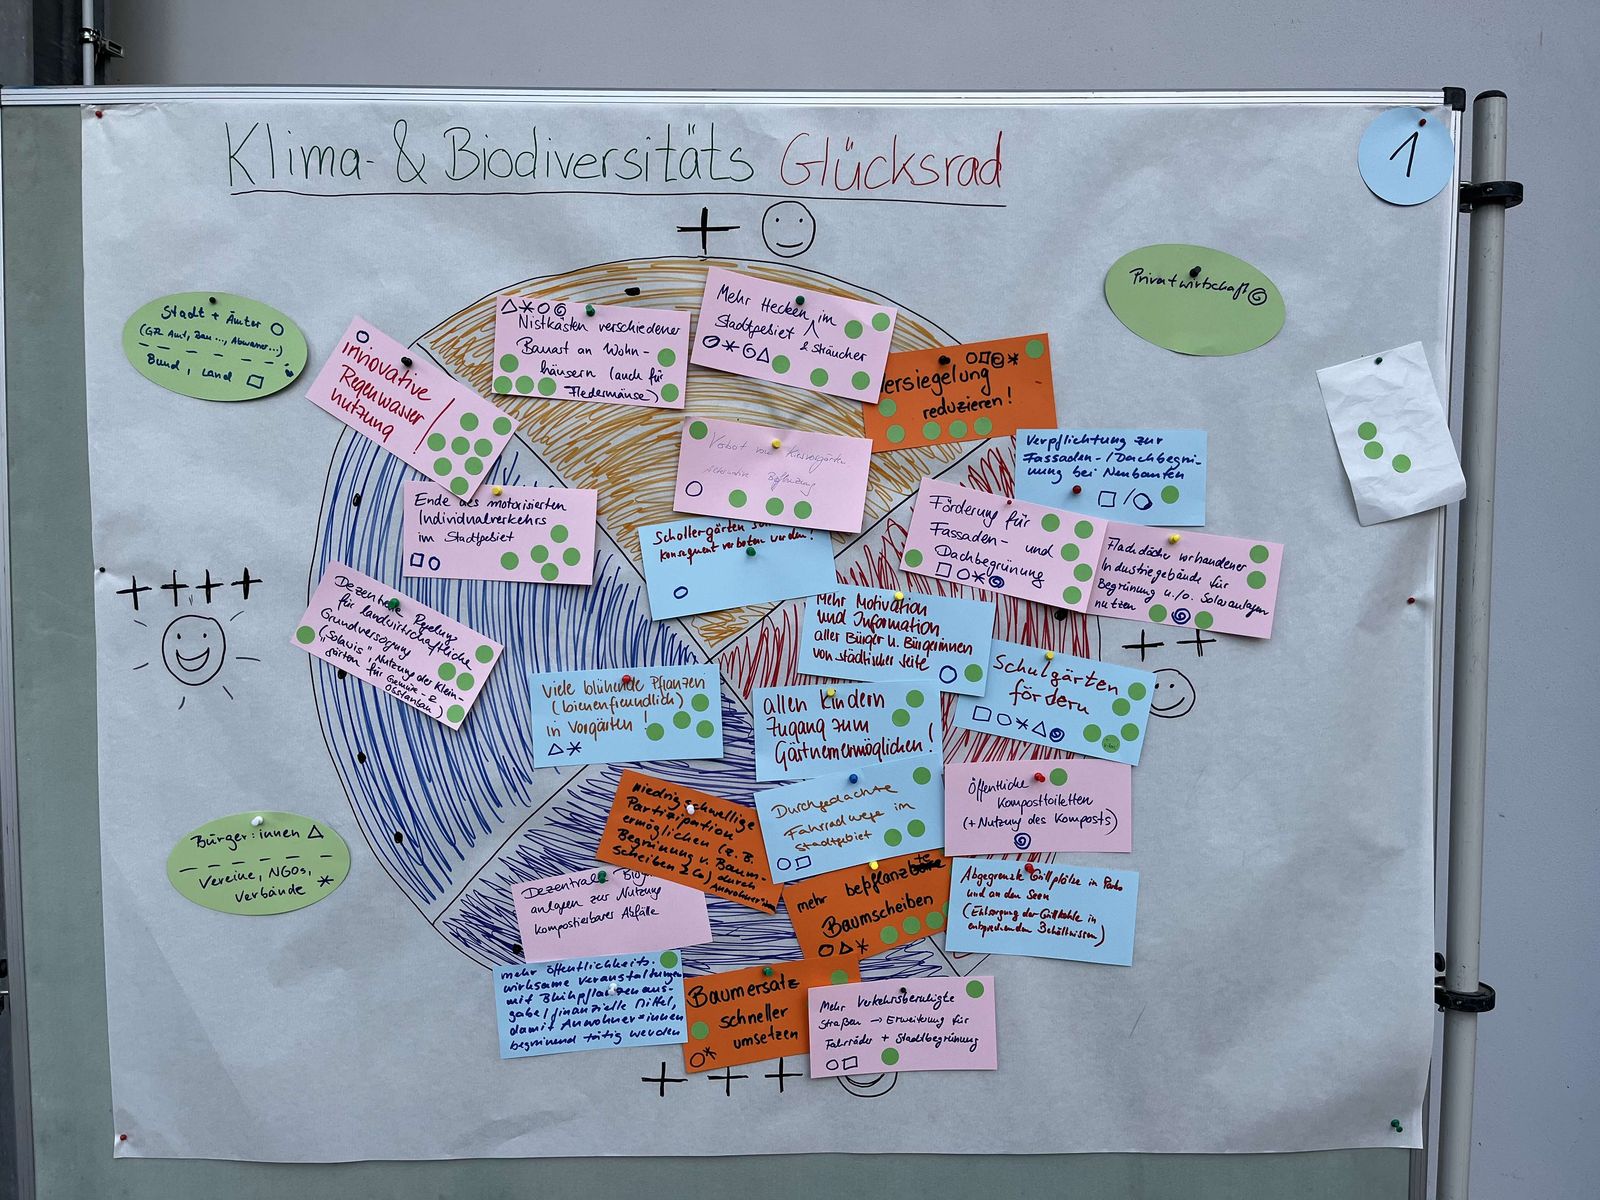 Klima- & Biodiversitäts Glücksrad
1
+
Stadt + Ämter
Bund, Land
Privatwirtschaft
innovative
Regenwasser
nutzung
Nistkästen verschiedener
Bauart an Wohn-
häusern (auch für
Fledermäuse)
Mehr Hecken im
Stadtgebiet
& Sträucher
ersiegelung
reduzieren!
Verpflichtung zur
Fassaden-/Dachbegrü-
nung bei Neubauten
Ende des motorisierten
Individualverkehrs
im Stadtgebiet
Schottergärten
konsequent verboten werden!
Förderung für
Fassaden- und
Dachbegrünung
Flachdächer vorhandener
Industriegebäude für
Begrünung u./o. Solaranlagen
nutzen
++++
Dezentrale Regelung
für landwirtschaftliche
Grundversorgung
("Solawis", Nutzung der Klein-
gärten für Gemüse- &
Obstanbau)
Mehr Motivation
und Information
aller Bürger u. Bürgerinnen
von städtischer Seite
++
Schulgärten
fördern
Viele blühende Pflanzen
(bienenfreundlich)
in Vorgärten!
allen Kindern
Zugang zum
Gärtnern ermöglichen!
Bürger:innen
Vereine, NGOs,
Verbände
niedrigschwellige
Partizipation
ermöglichen (z.B.
Begrünung v. Baum-
scheiben) durch
Durchgedachte
Fahrradwege im
Stadtgebiet
Öffentliche
Komposttoiletten
(+ Nutzung des Komposts)
Dezentrale
anlagen zur Nutzung
kompostierbarer Abfälle
mehr bepflanzte
Baumscheiben
Abgegrenzte Grillplätze in Parks
und an den Seen
(Entsorgung der Grillkohle in
entsprechenden Behältnissen)
mehr öffentlichkeits-
wirksame Veranstaltungen
mit Blühpflanzenaus-
gabe/finanzielle Mittel,
damit Anwohner*innen
begrünend tätig werden
Baumersatz
schneller
umsetzen
Mehr Verkehrsberuhigte
Straßen → Erweiterung für
Fahrräder + Stadtbegrünung
+++